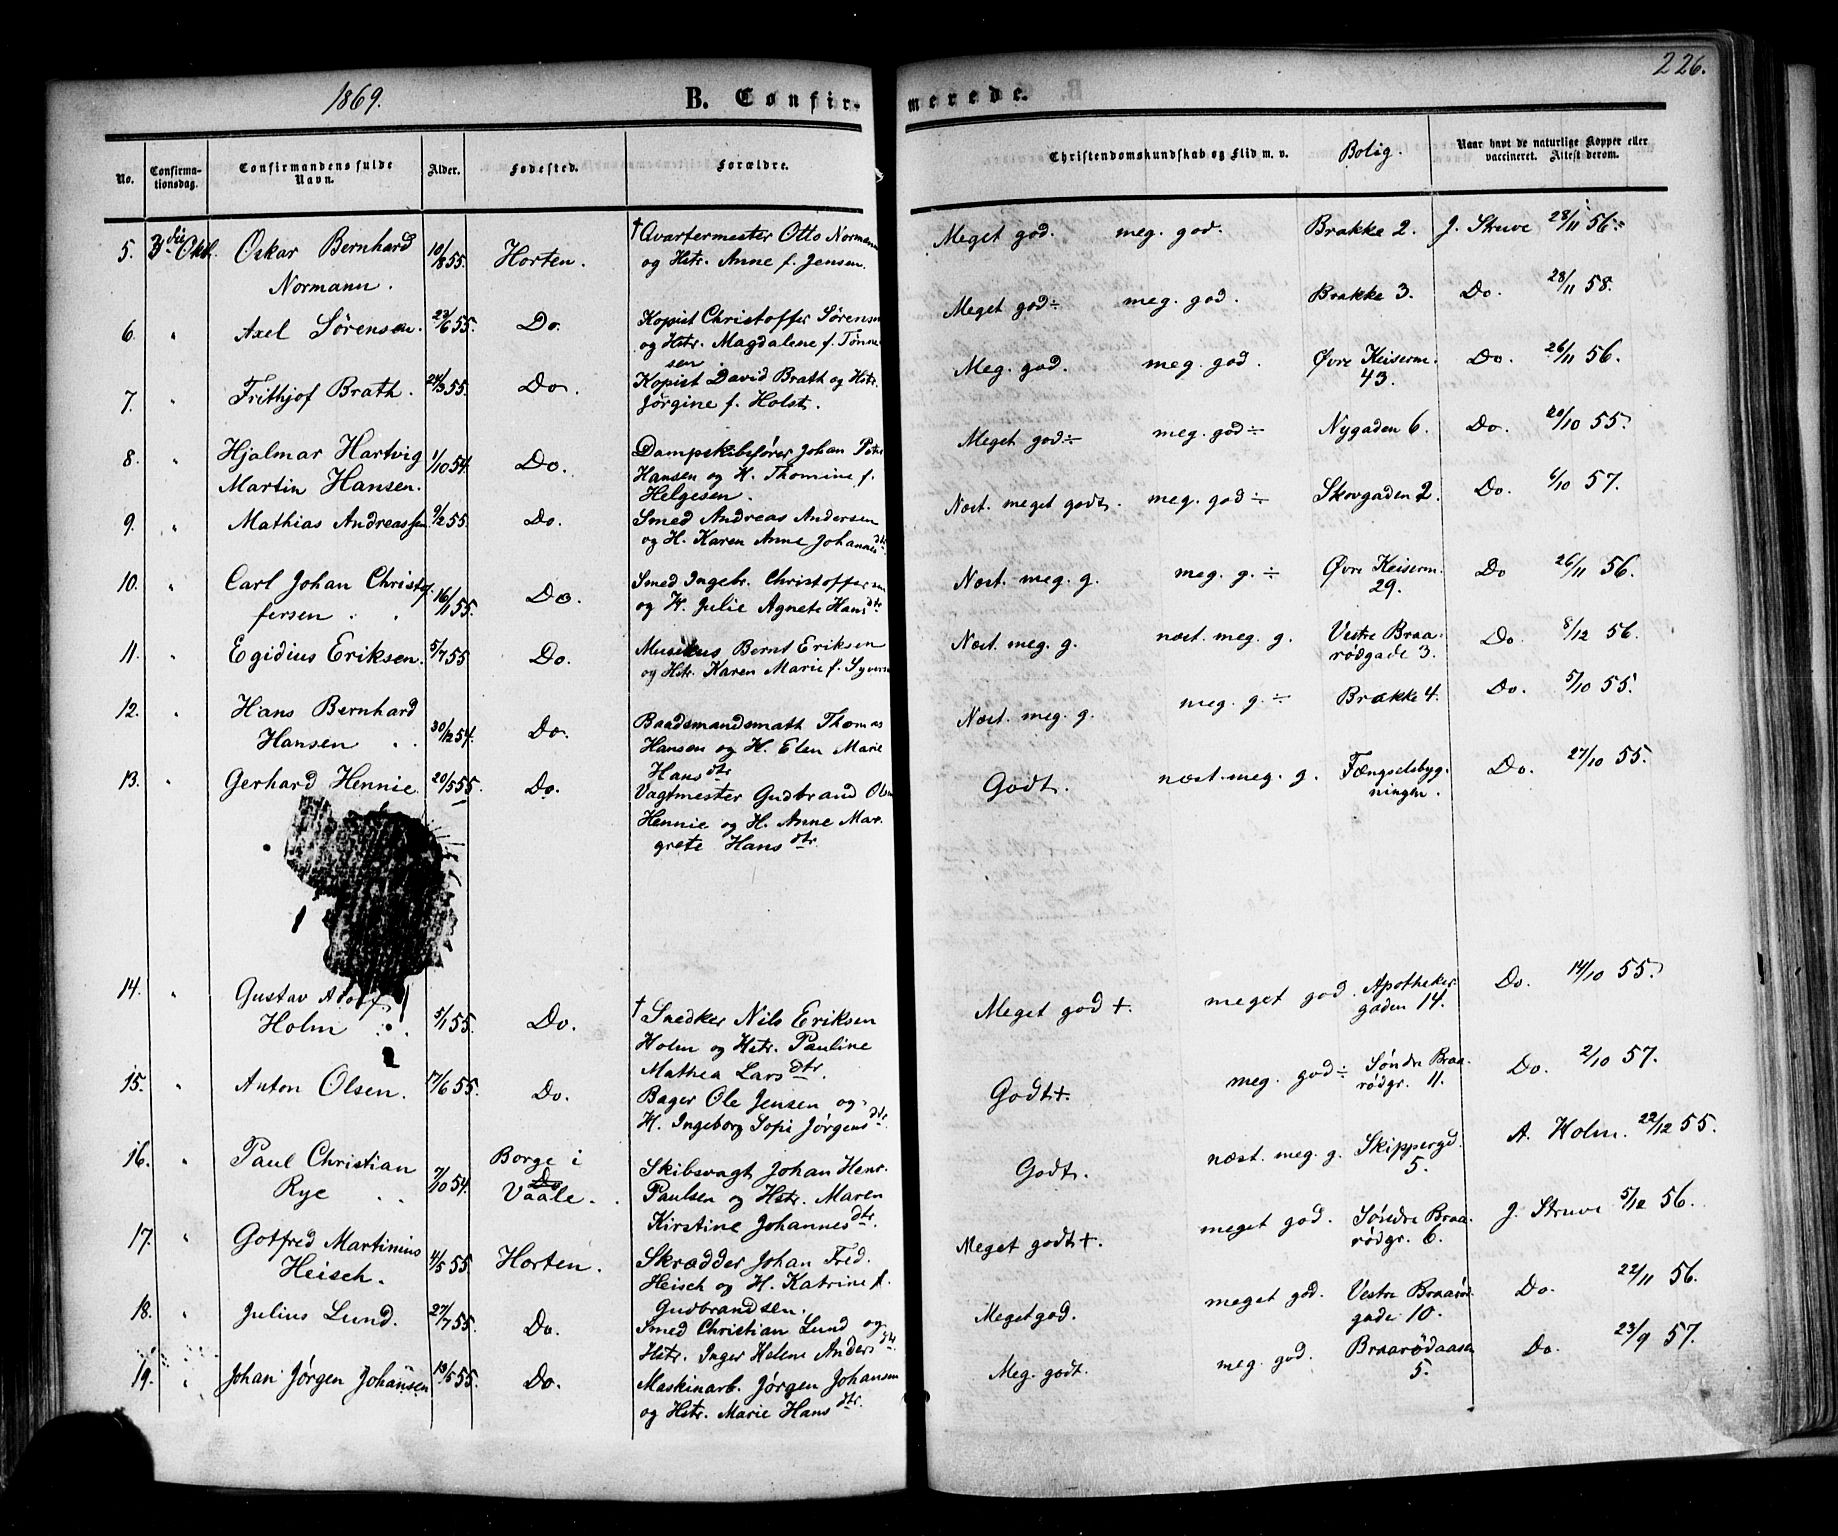 1869.
B. Confir-
merede.
226.
No.
Confirma-
tionsdag.
Confirmandens fulde
Navn.
Alder.
Fødested.
Forældre.
Christendomskundskab og Flid m. v.
Bolig.
Naar havt de naturlige Kopper eller
vaccineret. Attest derom.
5. 3die Okt. Oskar Bernhard 10/8 55. Horten. † Qvartermester Otto Normann
Normann. og Hstr. Anne f. Jensen.
Meget god. meg. god. Brakke 2. J. Struve 28/11 56.
6. " Axel Sørensen. 23/6 55. Do. Kopist Christoffer Sørensen
og Hstr. Magdalene f. Tønne
sen
Meget god ÷ meg. god. Brakke 3. Do. 28/11 58.
7. " Frithjof Brath. 24/3 55. Do. Kopist David Brath og Hstr.
Jørgine f. Holst.
Meg. god. meg. god. Øvre Keiserm. Do. 26/11 56.
43.
8. " Hjalmar Hartvig 1/10 54. Do. Dampskibsfører Johan Peter
Martin Hansen. Hansen og H. Thomine f.
Helgesen.
Meget god ÷ meg. god ÷ Nygaden 6. Do. 20/10 55.
9. " Mathias Andreassen 9/2 55. Do. Smed Andreas Andersen
og H. Karen Anne Johannesdtr.
Næst. meget godt. meg. god ÷ Skovgaden 2. Do. 6/10 57.
10. " Carl Johan Christof 16/11 55. Do. Smed Ingebr. Christoffersen
fersen og H. Julie Agnete Hansdtr
Næst. meg. g. meg. g. ÷ Øvre Keiserm. Do 26/11 56.
29.
11. " Egidius Eriksen. 5/7 55 Do. Musikus Bernt Eriksen
og Hstr. Karen Marie f. Syvers
Næst. meg. g. næst. meg. g. Vestre Braa- Do. 8/12 56.
rødgade 3.
12. " Hans Bernhard 30/12 54. Do. Baadsmandsmath Thomas
Hansen Hansen og H. Elen Marie
Hansdtr
Næst. meg. g. meg. g. ÷ Brakke 4. Do. 5/10 55.
13. " Gerhard Hennie 20/5 55. Do. Vagtmester Gudbrand Olsen
Hennie og H. Anne Mar-
grete Hansdtr.
Godt. næst. meg. g. Fængselsbyg- Do. 27/10 55.
ningen.
14. " Gustav Adolf 5/1 55. Do. † Snedker Nils Eriksen
Holm Holm og Hstr. Pauline
Mathea Larsdtr.
Meget god +. meget god. Apotheker Do. 14/10 55.
gaden 14.
15. " Anton Olsen. 17/6 55. Do. Bager Ole Jensen og
H. Ingeborg Sopi Jørgensdtr
Godt +. meg. god ÷ Søndre Braa- Do. 2/10 57.
rødgr. 11.
16. " Paul Christian 7/10 54. Borge i Skibsvagt Johan Henr.
Do
Rye Vaale. Paulsen og Hstr. Maren
Kirstine Johannesdtr.
Godt. næst. meg. g. Skippergd. A. Holm. 22/12 55.
5.
17. " Gotfred Martinius 4/5 55. Horten. Skrædder Johan Fred.
Heisch. Heisch og H. Katrine f.
Gudbrandsen.
Meget godt +. meget god. Søndre Braa- J. Struve 5/12 56.
rødgr. 6.
18. " Julius Lund. 27/7 55. Do. Smed Christian Lund og
Hstr. Inger Helene Andersdtr.
Meget god. meget god. Vestre Braarød Do. 22/11 56.
gade 10.
19. " Johan Jørgen Johansen 13/5 55. Do. Maskinarb. Jørgen Johansen
og Hstr. Marie Hansdtr.
Meg. godt. meg. god. Braarødaasen Do. 23/9 57.
5.